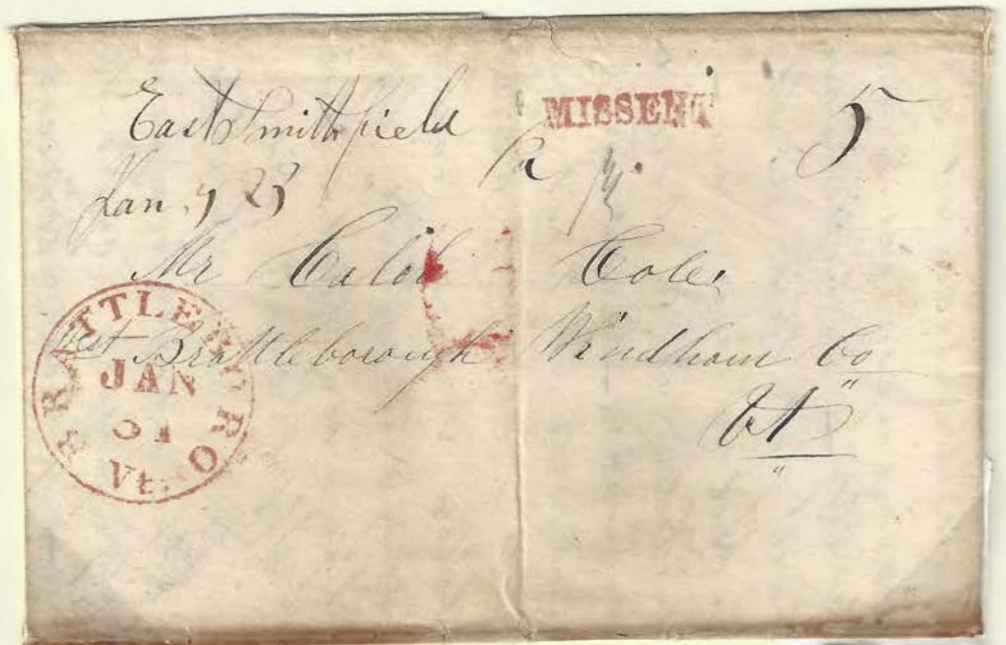 East Smithfield Pa
MISSENT
5
Jan. 23
Mr Caleb Cole,
West Brattleborough Windham Co
Vt
BRATTLEBORO
JAN
31
Vt.